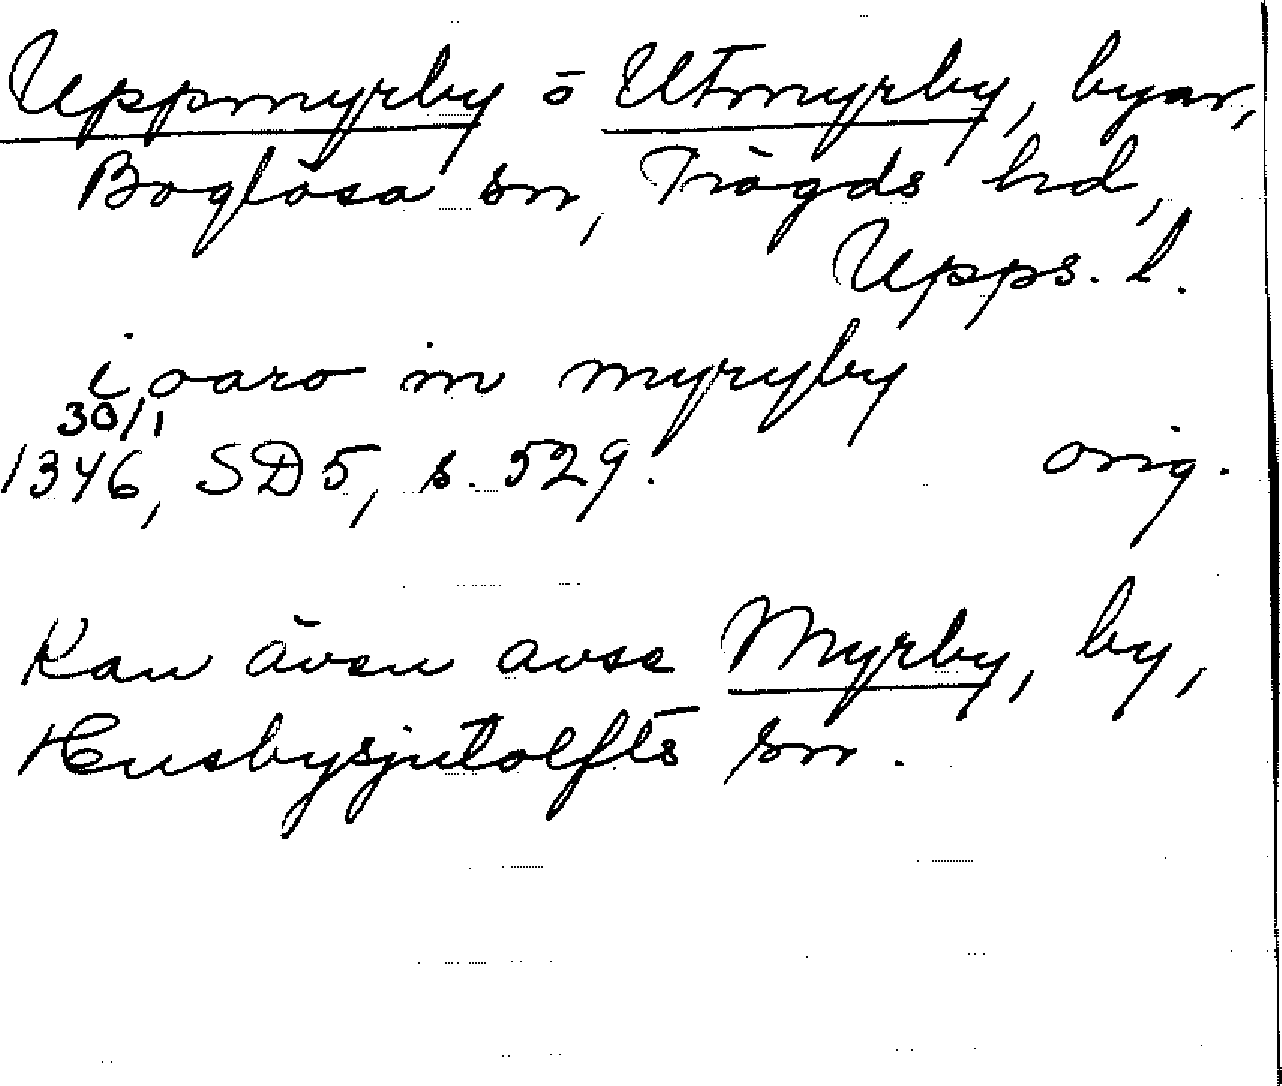 Uppmyrby o Utmyrby, byar,
Boglösa sn, Trögds hd,
Upps. l.
i oaro in myryby
30/1
1346, SD5, s. 529. orig.
Kan även avse Myrby, by,
Husbysjutolfts sn.